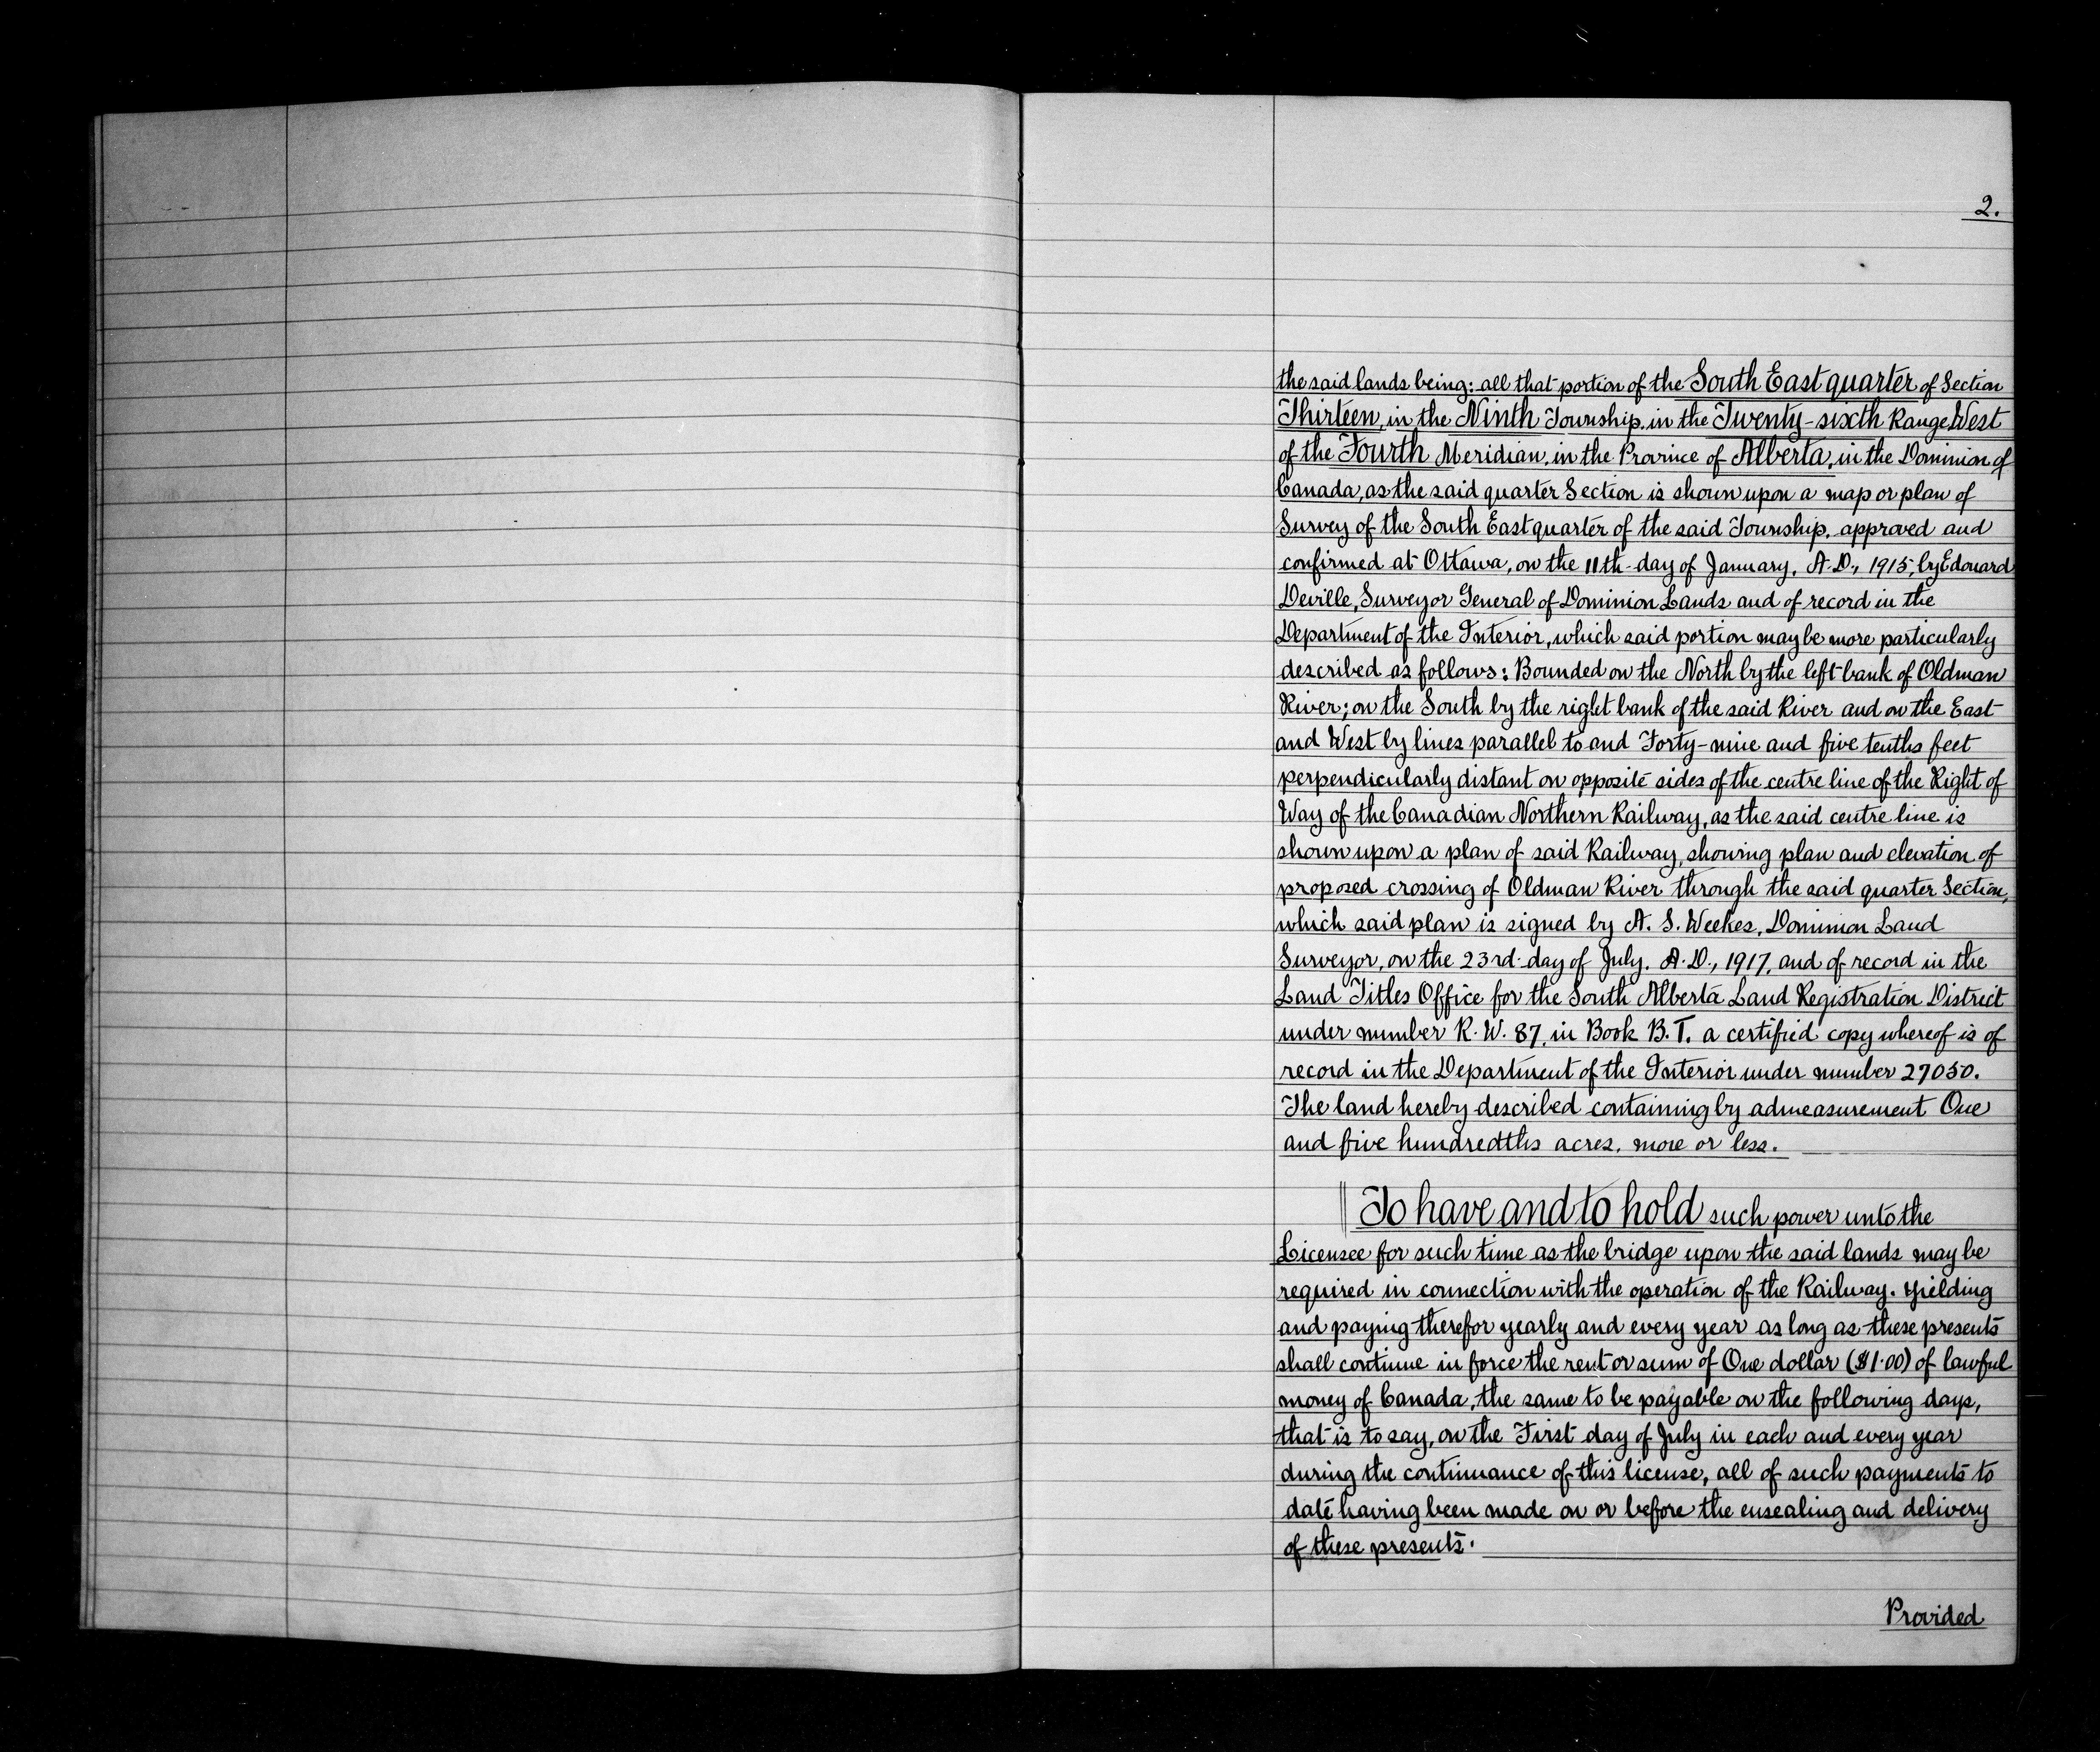 2.
the said lands being: all that portion of the South East quarter of Section
Thirteen, in the Ninth Township, in the Twenty-sixth Range West
of the Fourth Meridian, in the Province of Alberta, in the Dominion of
Canada, as the said quarter Section is shown upon a map or plan of
Survey of the South East quarter of the said Township, approved and
confirmed at Ottawa, on the 11th day of January, A.D., 1915, by Edouard
Deville, Surveyor General of Dominion Lands and of record in the
Department of the Interior, which said portion may be more particularly
described as follows: Bounded on the North by the left bank of Oldman
River; on the South by the right bank of the said River and on the East
and West by lines parallel to and Forty-nine and five tenths feet
perpendicularly distant on opposite sides of the centre line of the Right of
Way of the Canadian Northern Railway, as the said centre line is
shown upon a plan of said Railway, showing plan and elevation of
proposed crossing of Oldman River through the said quarter Section,
which said plan is signed by A. S. Weekes, Dominion Land
Surveyor, on the 23rd day of July, A.D., 1917, and of record in the
Land Titles Office for the South Alberta Land Registration District
under number R. W. 87, in Book B. T. a certified copy whereof is of
record in the Department of the Interior under number 27050.
The land hereby described containing by admeasurement One
and five hundredths acres, more or less.
To have and to hold such power unto the
Licensee for such time as the bridge upon the said lands may be
required in connection with the operation of the Railway. Yielding
and paying therefor yearly and every year as long as these presents
shall continue in force the rent or sum of One dollar ($1.00) of lawful
money of Canada, the same to be payable on the following days,
that is to say, on the First day of July in each and every year
during the continuance of this license, all of such payments to
date having been made on or before the ensealing and delivery
of these presents.
Provided